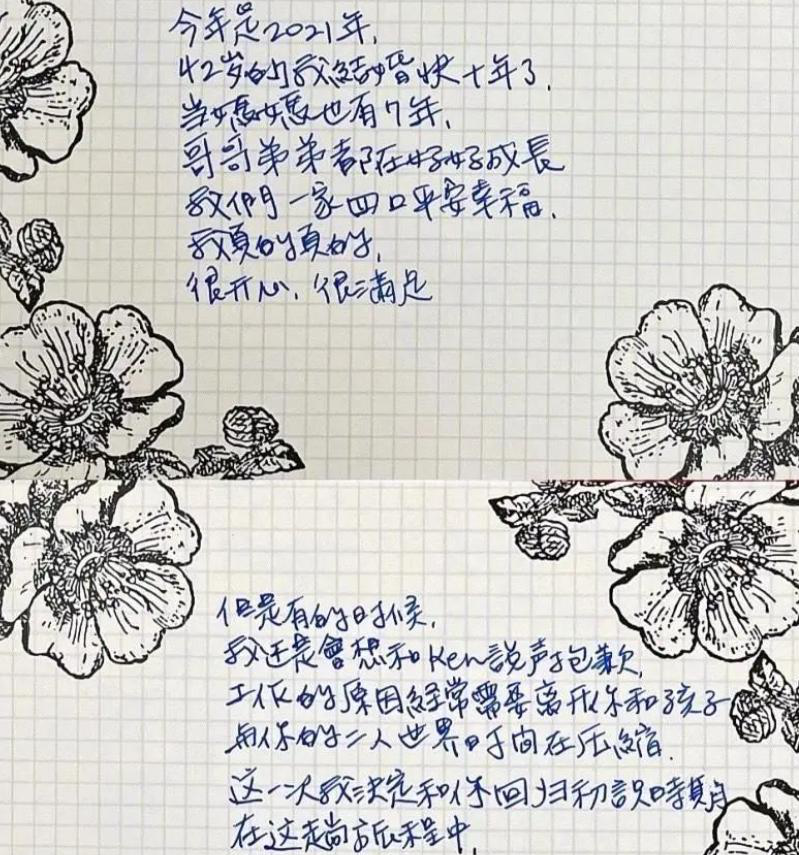 今年是2021年,
42岁的我結婚快十年了,
当媽媽也有7年,
哥哥弟弟都在好好成長
我們一家四口平安幸福,
我真的真的,
很开心, 很滿足
但是有的时候,
我还是會想和Ken説声抱歉,
工作的原因經常需要离开你和孩子
与你的二人世界时间在压縮,
这一次我決定和你回归初識時期
在这趟旅程中,